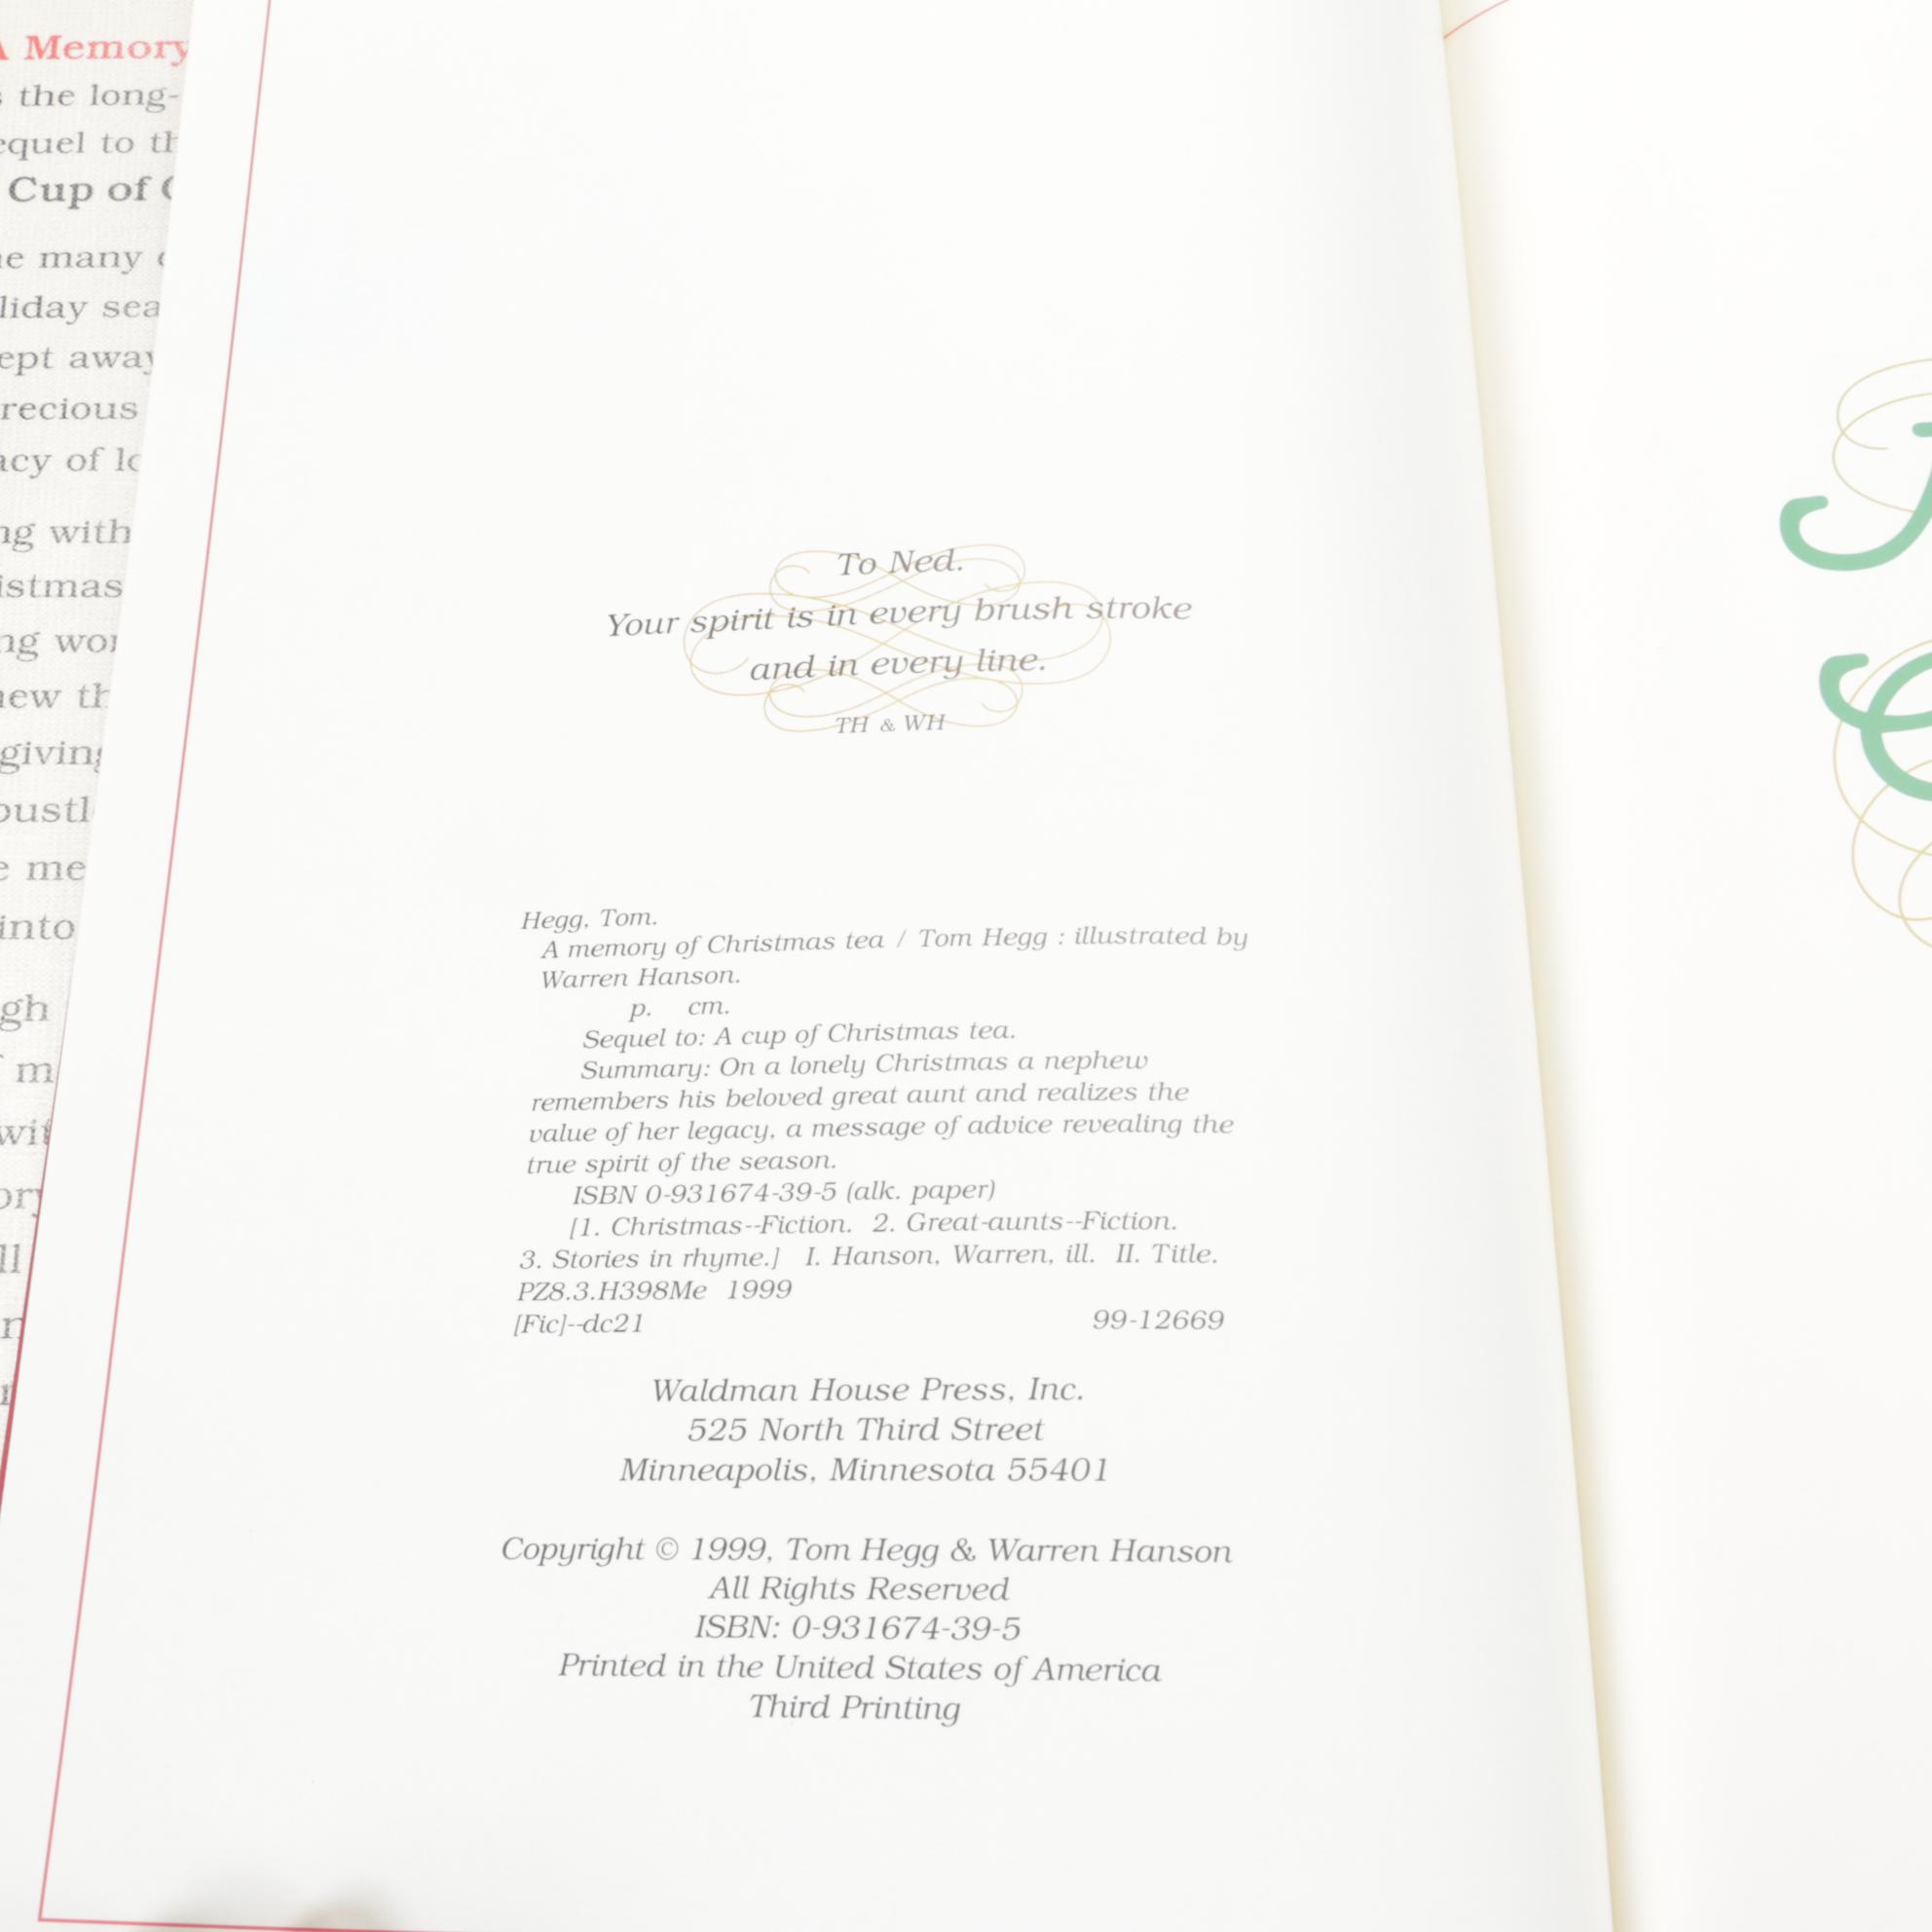 A Memory
the long-
equel to th
Cup of
many
liday sea
ept away
recious
acy of lo
ng with
istmas
ng wor
new th
giving
bustl
me
into
gh
m
wit
ory
ll
To Ned.
Your spirit is in every brush stroke
and in every line.
TH & WH
Hegg, Tom.
A memory of Christmas tea / Tom Hegg : illustrated by
Warren Hanson.
p. cm.
Sequel to: A cup of Christmas tea.
Summary: On a lonely Christmas a nephew
remembers his beloved great aunt and realizes the
value of her legacy, a message of advice revealing the
true spirit of the season.
ISBN 0-931674-39-5 (alk. paper)
[1. Christmas--Fiction. 2. Great-aunts--Fiction.
3. Stories in rhyme.] I. Hanson, Warren, ill. II. Title.
PZ8.3.H398Me 1999
[Fic]--dc21 99-12669
Waldman House Press, Inc.
525 North Third Street
Minneapolis, Minnesota 55401
Copyright © 1999, Tom Hegg & Warren Hanson
All Rights Reserved
ISBN: 0-931674-39-5
Printed in the United States of America
Third Printing